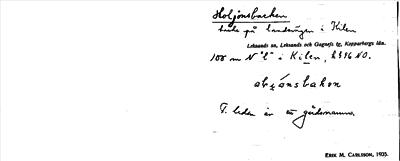 Holjånsbacken
backe på landsvägen i Kilen
Leksands sn, Leksands och Gagnefs tg, Kopparbergs län.
100 m N "l" i Kilen,
T. leden är en gårdsnamn.
ERIK M. CARLSSON, 1935.